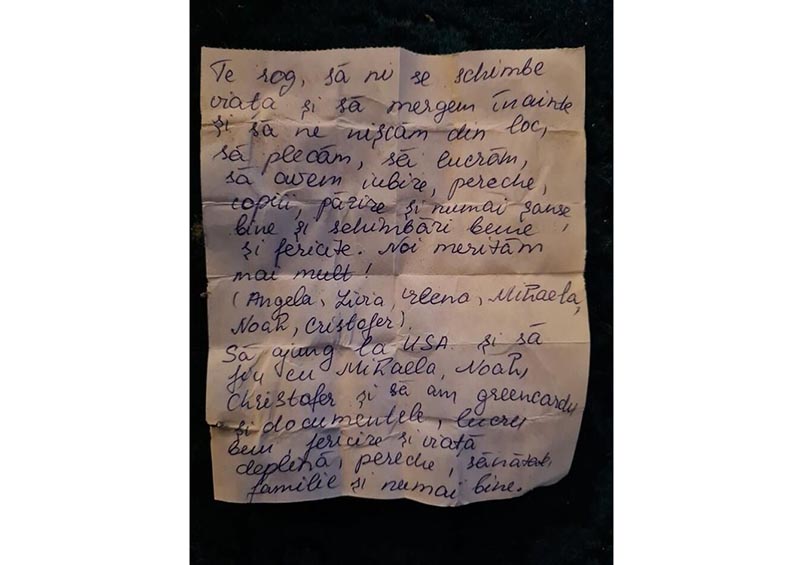 Te rog, să ni se schimbe
viata și să mergem înainte
și să ne nișcăm din loc,
să plecăm, să lucrăm,
să avem iubire, pereche,
copiii, păzire și numai șanse
bine și schimbări beme,
și fericite. Noi merităm
mai mult!
(Angela, Livia, Mihaela,
Noah, Cristofer).
Să ajung la USA. și să
fiu cu Mihaela, Noah,
Christofer și să am greencardu
și documentele, lucru
bem, fericire și viată
deplină, pereche, sănătate,
familie și numai bine.